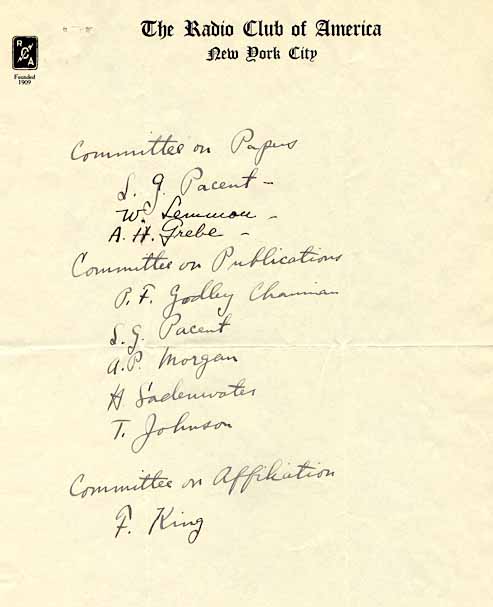 The Radio Club of America
New York City
R C A
Founded
1909
Committee on Papers
L. G. Pacent -
W. Lemmon -
A. H. Grebe -
Committee on Publications
P. F. Godley Chairman
L. G. Pacent
A. P. Morgan
H Sadenwater
T. Johnson
Committee on Affiliation
F. King